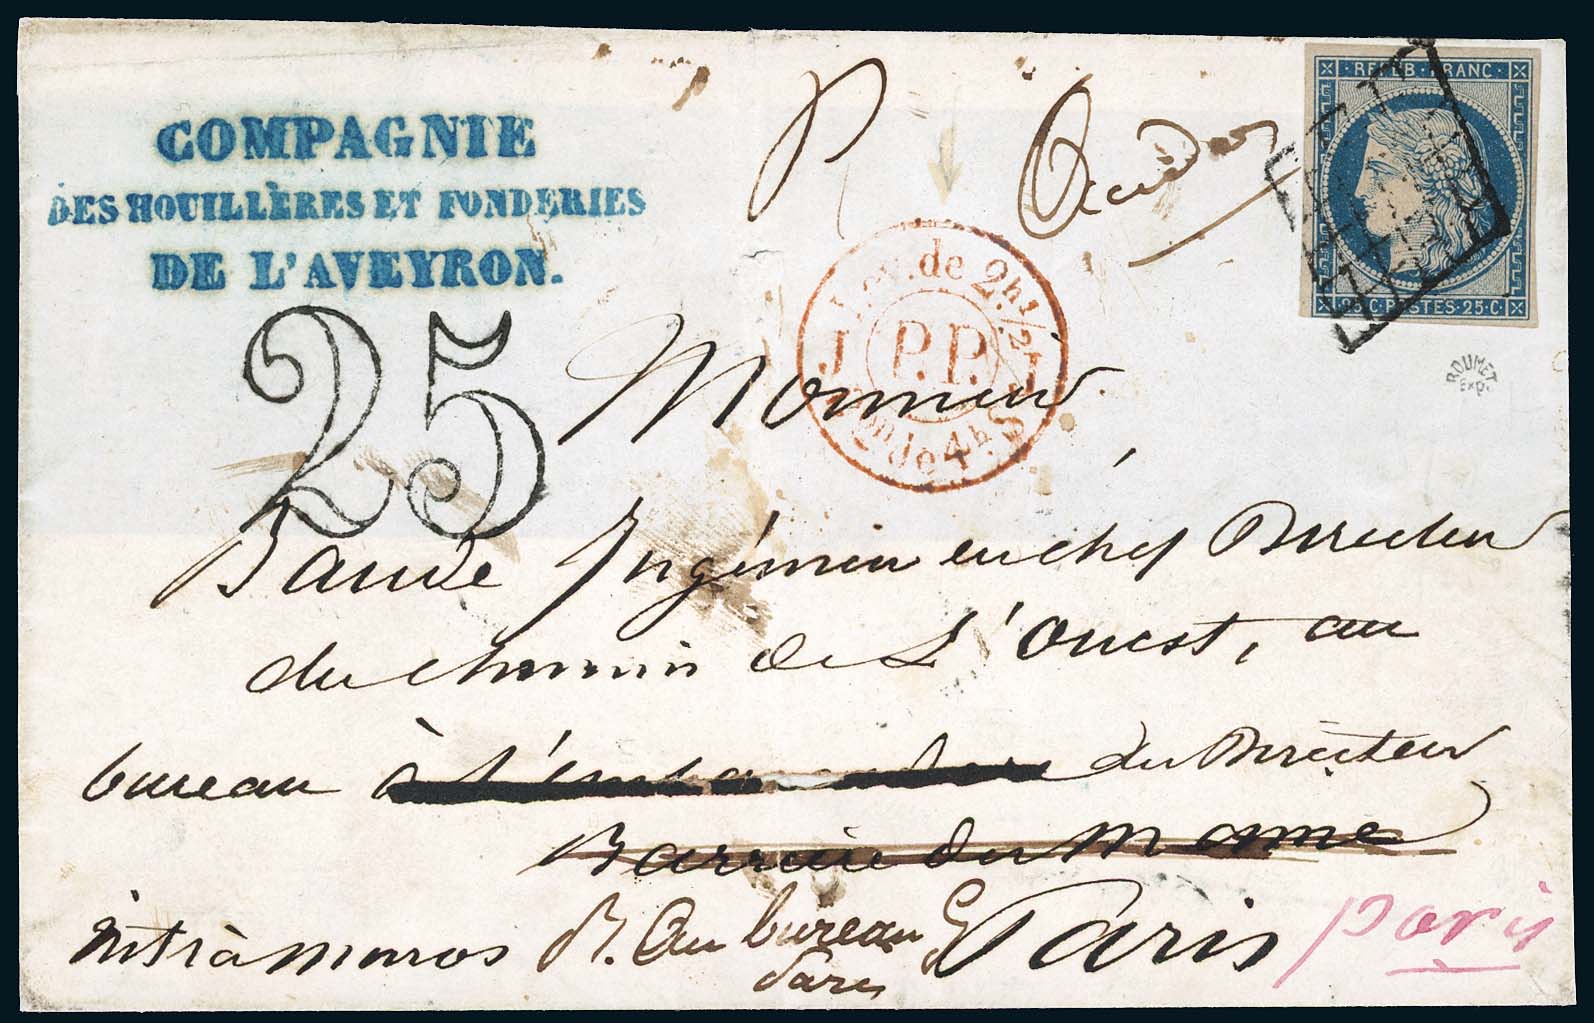 COMPAGNIE
DES HOUILLÈRES ET FONDERIES
DE L'AVEYRON.
REPUB. FRANC.
25.C. POSTES.25.C.
ROUMET
Exp.
Lev. de 2h 1/2
J P.P. J
on de 4h S
25
Monsieur
Baude Ingénieur en chef Directeur
du chemin de L'Ouest, au
bureau du Directeur
Barrière du Maine
intrà muros R. Au bureau Paris Paris